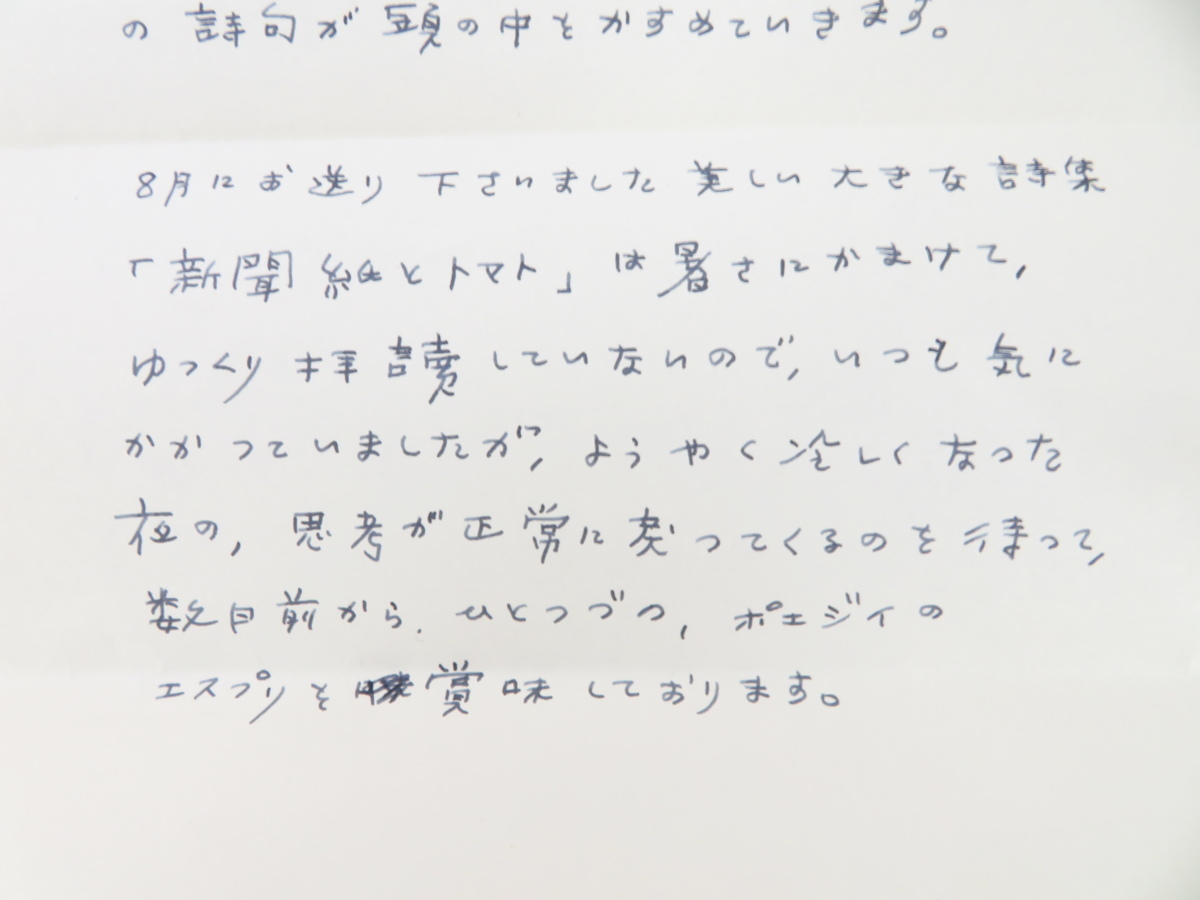 の詩句が頭の中をかすめていきます。
8月にお送り下さいました美しい大きな詩集
「新聞紙とトマト」は暑さにかまけて,
ゆっくり拝読していないので,いつも気に
かかっていましたが,ようやく涼しくなった
夜の,思考が正常に戻ってくるのを待って,
数日前から.ひとつづつ,ポエジイの
エスプリを賞味しております。